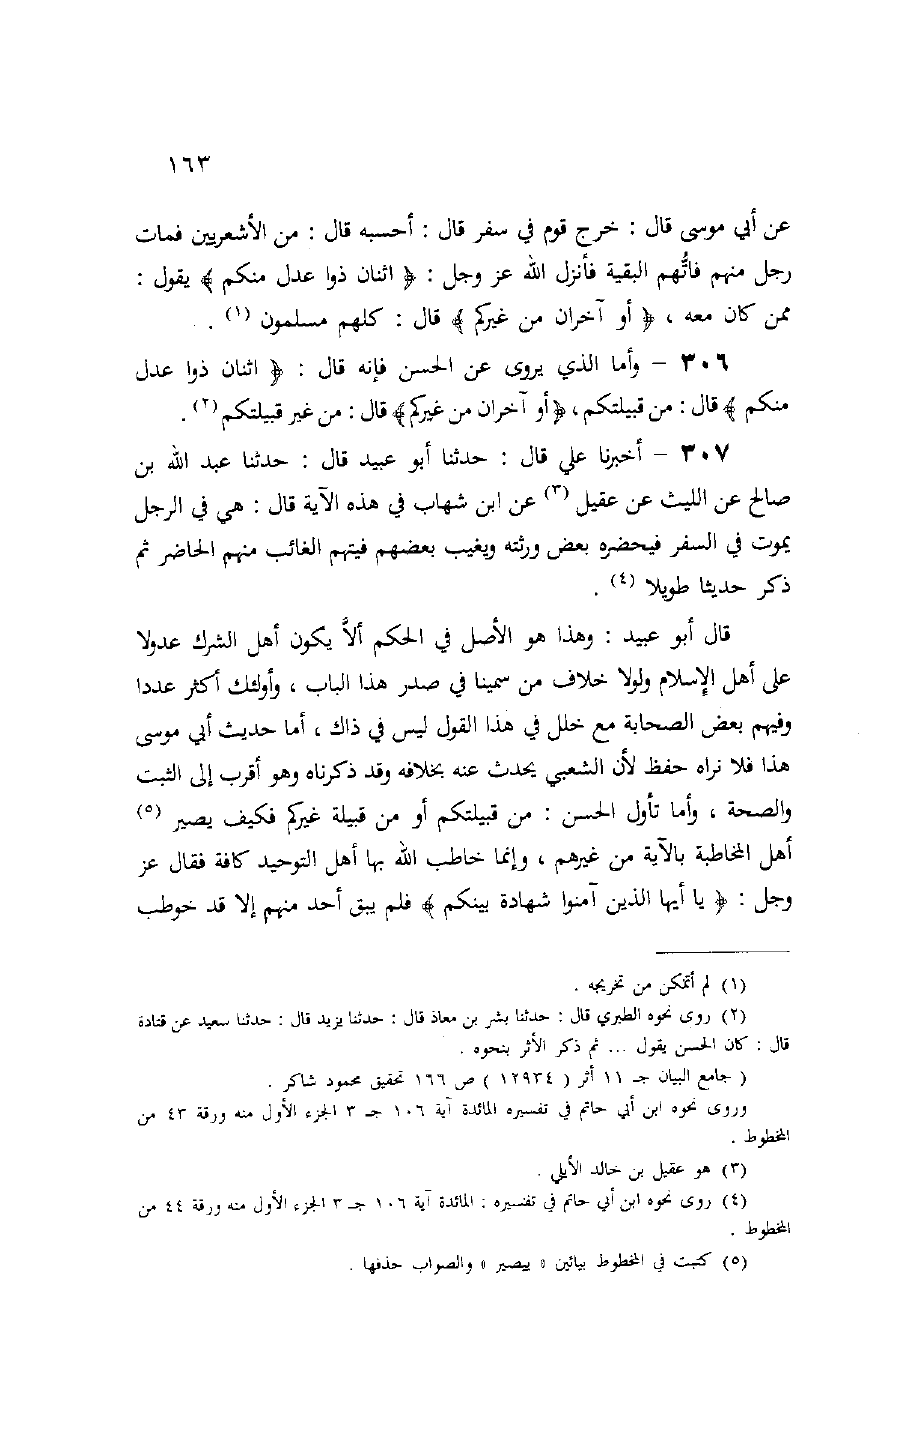 ١٦٣
عن أبي موسى قال : خرج قوم في سفر قال : أحسبه قال : من الأشعريين فمات
رجل منهم فاتُّهم البقية فأنزل الله عز وجل : ﴿ اثنان ذوا عدل منكم ﴾ يقول :
ممن كان معه ، ﴿ أو آخران من غيركم ﴾ قال : كلهم مسلمون (١) .
٣٠٦ – وأما الذي يروى عن الحسن فإنه قال : ﴿ اثنان ذوا عدل
منكم ﴾ قال : من قبيلتكم ، ﴿أو آخران من غيركم﴾ قال : من غير قبيلتكم (٢) .
٣٠٧ – أخبرنا علي قال : حدثنا أبو عبيد قال : حدثنا عبد الله بن
صالح عن الليث عن عقيل (٣) عن ابن شهاب في هذه الآية قال : هي في الرجل
يموت في السفر فيحضره بعض ورثته ويغيب بعضهم فيتهم الغائب منهم الحاضر ثم
ذكر حديثا طويلا (٤) .
قال أبو عبيد : وهذا هو الأصل في الحكم ألاَّ يكون أهل الشرك عدولا
على أهل الإسلام ولولا خلاف من سمينا في صدر هذا الباب ، وأولئك أكثر عددا
وفيهم بعض الصحابة مع خلل في هذا القول ليس في ذاك ، أما حديث أبي موسى
هذا فلا نراه حفظ لأن الشعبي يحدث عنه بخلافه وقد ذكرناه وهو أقرب إلى الثبت
والصحة ، وأما تأول الحسن : من قبيلتكم أو من قبيلة غيركم فكيف يصير (٥)
أهل المخاطبة بالآية من غيرهم ، وإنما خاطب الله بها أهل التوحيد كافة فقال عز
وجل : ﴿ يا أيها الذين آمنوا شهادة بينكم ﴾ فلم يبق أحد منهم إلا قد خوطب
(١) لم أتمكن من تخريجه .
(٢) روى نحوه الطبري قال : حدثنا بشر بن معاذ قال : حدثنا يزيد قال : حدثنا سعيد عن قتادة
قال : كان الحسن يقول ... ثم ذكر الأثر بنحوه .
( جامع البيان جـ ١١ أثر ( ١٢٩٣٤ ) ص ١٦٦ تحقيق محمود شاكر .
وروى نحوه ابن أبي حاتم في تفسيره المائدة آية ١٠٦ جـ ٣ الجزء الأول منه ورقة ٤٣ من
المخطوط .
(٣) هو عقيل بن خالد الأيلي .
(٤) روى نحوه ابن أبي حاتم في تفسيره : المائدة آية ١٠٦ جـ ٣ الجزء الأول منه ورقة ٤٤ من
المخطوط .
(٥) كتبت في المخطوط بيائين « ييصير » والصواب حذفها .